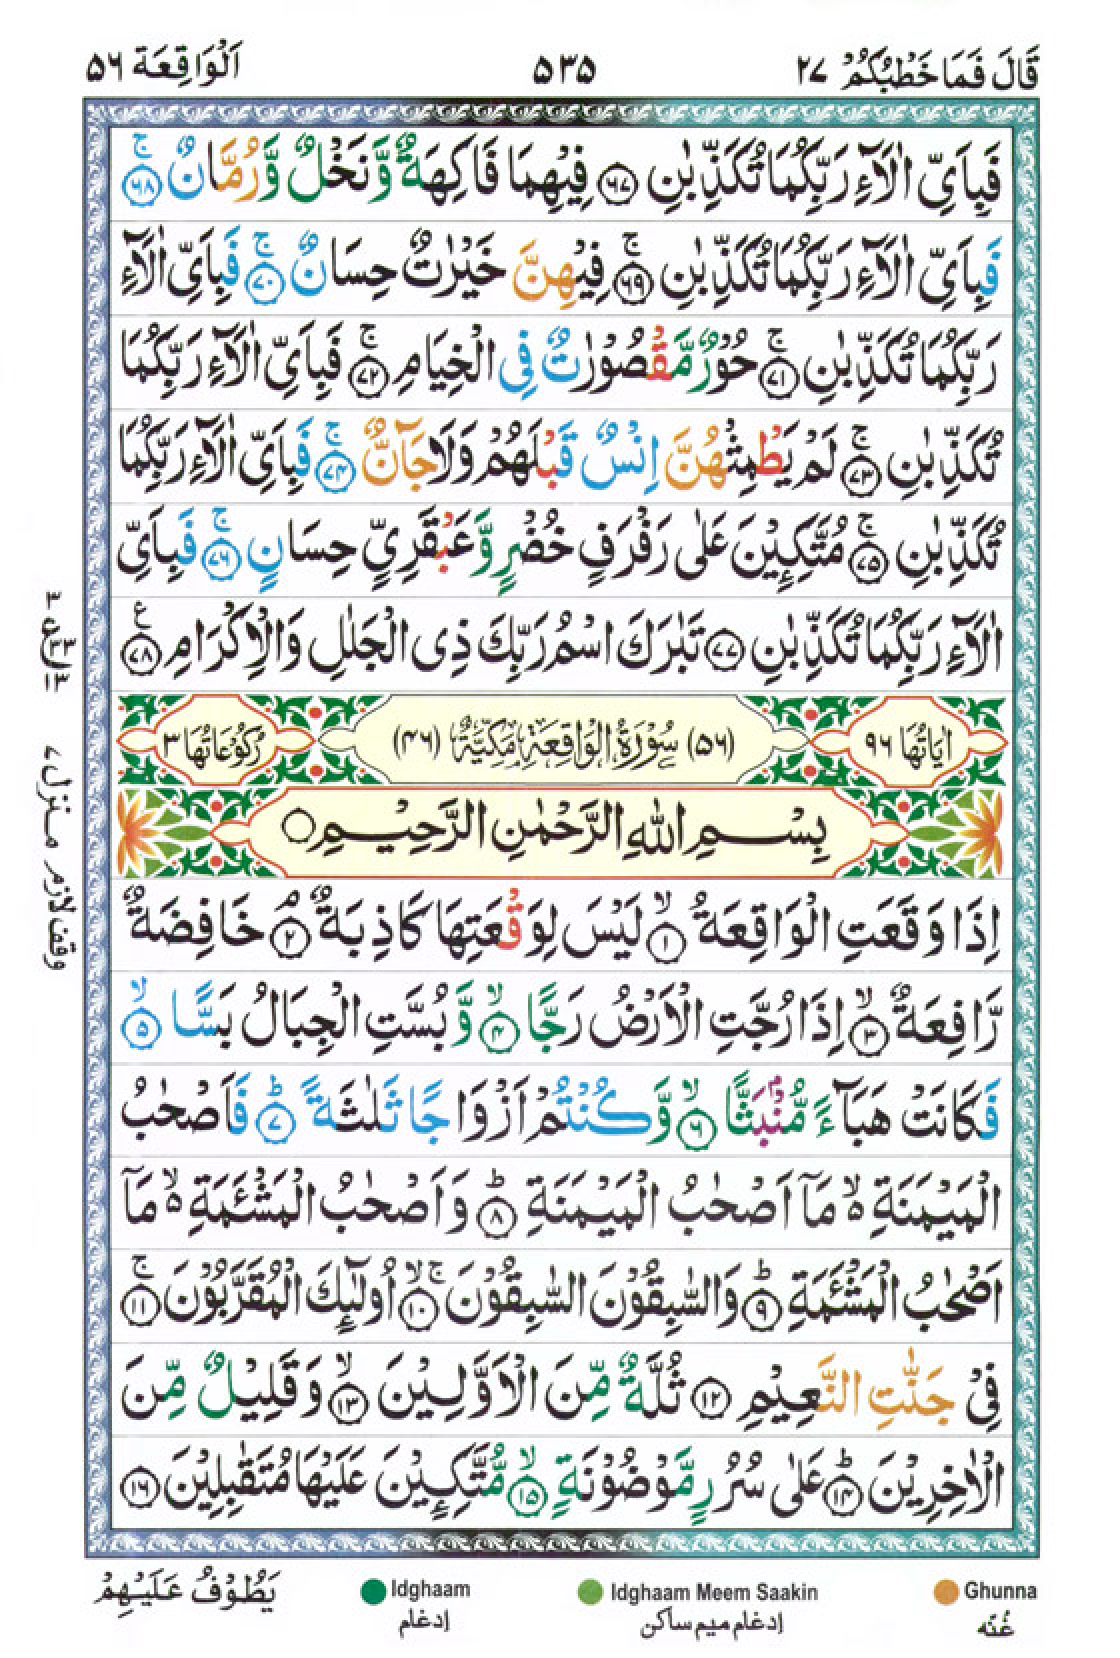 قَالَ فَمَا خَطْبُكُمْ ٢٧ ٥٣٥ اَلْوَاقِعَة ٥٦
فَبِاَىِّ اٰلَآءِ رَبِّكُمَا تُكَذِّبٰنِ ﴿٦٧﴾ فِيْهِمَا فَاكِهَةٌ وَّنَخْلٌ وَّرُمَّانٌ ۚ﴿٦٨﴾
فَبِاَىِّ اٰلَآءِ رَبِّكُمَا تُكَذِّبٰنِ ۚ﴿٦٩﴾ فِيْهِنَّ خَيْرٰتٌ حِسَانٌ ۚ﴿٧٠﴾ فَبِاَىِّ اٰلَآءِ
رَبِّكُمَا تُكَذِّبٰنِ ۚ﴿٧١﴾ حُوْرٌ مَّقْصُوْرٰتٌ فِى الْخِيَامِ ۚ﴿٧٢﴾ فَبِاَىِّ اٰلَآءِ رَبِّكُمَا
تُكَذِّبٰنِ ۚ﴿٧٣﴾ لَمْ يَطْمِثْهُنَّ اِنْسٌ قَبْلَهُمْ وَلَا جَآنٌّ ۚ﴿٧٤﴾ فَبِاَىِّ اٰلَآءِ رَبِّكُمَا
تُكَذِّبٰنِ ۚ﴿٧٥﴾ مُتَّكِـِٕيْنَ عَلٰى رَفْرَفٍ خُضْرٍ وَّعَبْقَرِىٍّ حِسَانٍ ۚ﴿٧٦﴾ فَبِاَىِّ
اٰلَآءِ رَبِّكُمَا تُكَذِّبٰنِ ﴿٧٧﴾ تَبٰرَكَ اسْمُ رَبِّكَ ذِى الْجَلٰلِ وَالْاِكْرَامِ ﴿٧٨﴾ ع
اٰيَاتُهَا ٩٦ (٥٦) سُوْرَةُ الْوَاقِعَةِ مَكِّيَّةٌ (٤٦) رُكُوْعَاتُهَا ٣
بِسْمِ اللّٰهِ الرَّحْمٰنِ الرَّحِيْمِ ۝
اِذَا وَقَعَتِ الْوَاقِعَةُ ۙ﴿١﴾ لَيْسَ لِوَقْعَتِهَا كَاذِبَةٌ ۘ﴿٢﴾ خَافِضَةٌ
رَّافِعَةٌ ۙ﴿٣﴾ اِذَا رُجَّتِ الْاَرْضُ رَجًّا ۙ﴿٤﴾ وَّبُسَّتِ الْجِبَالُ بَسًّا ۙ﴿٥﴾
فَكَانَتْ هَبَآءً مُّنْۢبَثًّا ۙ﴿٦﴾ وَّكُنْتُمْ اَزْوَاجًا ثَلٰثَةً ؕ﴿٧﴾ فَاَصْحٰبُ
الْمَيْمَنَةِ ۙ۬ مَاۤ اَصْحٰبُ الْمَيْمَنَةِ ؕ﴿٨﴾ وَاَصْحٰبُ الْمَشْـَٔمَةِ ۙ۬ مَاۤ
اَصْحٰبُ الْمَشْـَٔمَةِ ؕ﴿٩﴾ وَالسّٰبِقُوْنَ السّٰبِقُوْنَ ۚۙ﴿١٠﴾ اُولٰٓئِكَ الْمُقَرَّبُوْنَ ۚ﴿١١﴾
فِىْ جَنّٰتِ النَّعِيْمِ ﴿١٢﴾ ثُلَّةٌ مِّنَ الْاَوَّلِيْنَ ۙ﴿١٣﴾ وَقَلِيْلٌ مِّنَ
الْاٰخِرِيْنَ ؕ﴿١٤﴾ عَلٰى سُرُرٍ مَّوْضُوْنَةٍ ۙ﴿١٥﴾ مُّتَّكِـِٕيْنَ عَلَيْهَا مُتَقٰبِلِيْنَ ﴿١٦﴾
وقف لازم منزل ٧
يَطُوْفُ عَلَيْهِمْ
Idghaam
إدغام
Idghaam Meem Saakin
إدغام ميم ساكن
Ghunna
غُنّه